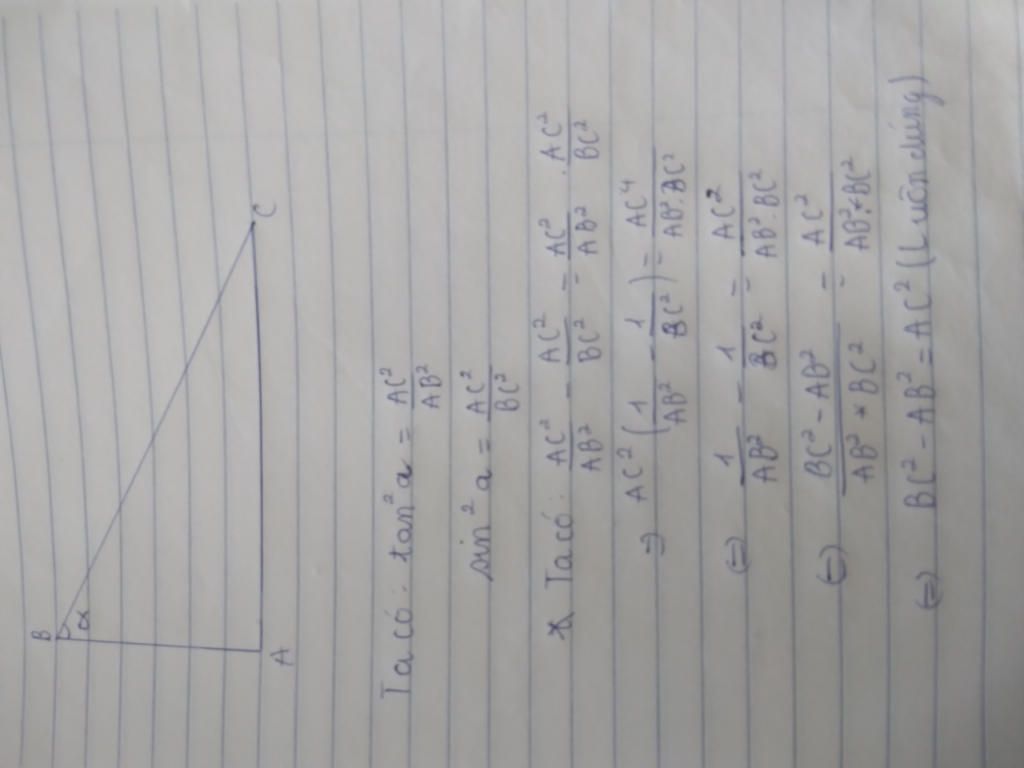 B
α
A
C
Ta có: tan² a = AC²/AB²
sin² a = AC²/BC²
* Ta có: AC²/AB² - AC²/BC² = AC²/AB² . AC²/BC²
=) AC² (1/AB² - 1/BC²) = AC⁴/AB².BC²
(=) 1/AB² - 1/BC² = AC²/AB².BC²
(=) BC² - AB²/AB² * BC² = AC²/AB² * BC²
(=) BC² - AB² = AC² (Luôn đúng)